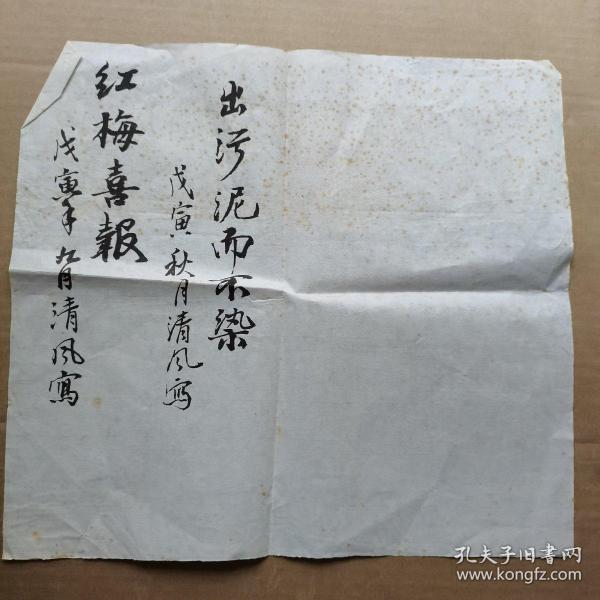 出污泥而不染
戊寅秋月清风寫
红梅喜報
戊寅年九月清风寫
孔夫子旧書网
www.kongfz.com